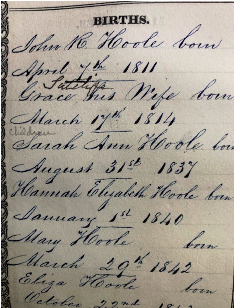 BIRTHS.
John H. Hoole born
April 7th 1811
Sutcliffe
Grace his Wife born
March 17th 1814
Children
Sarah Ann Hoole born
August 31st 1837
Hannah Elizabeth Hoole born
January 1st 1840
Mary Hoole born
March 29th 1842
Eliza Hoole born
October 22nd